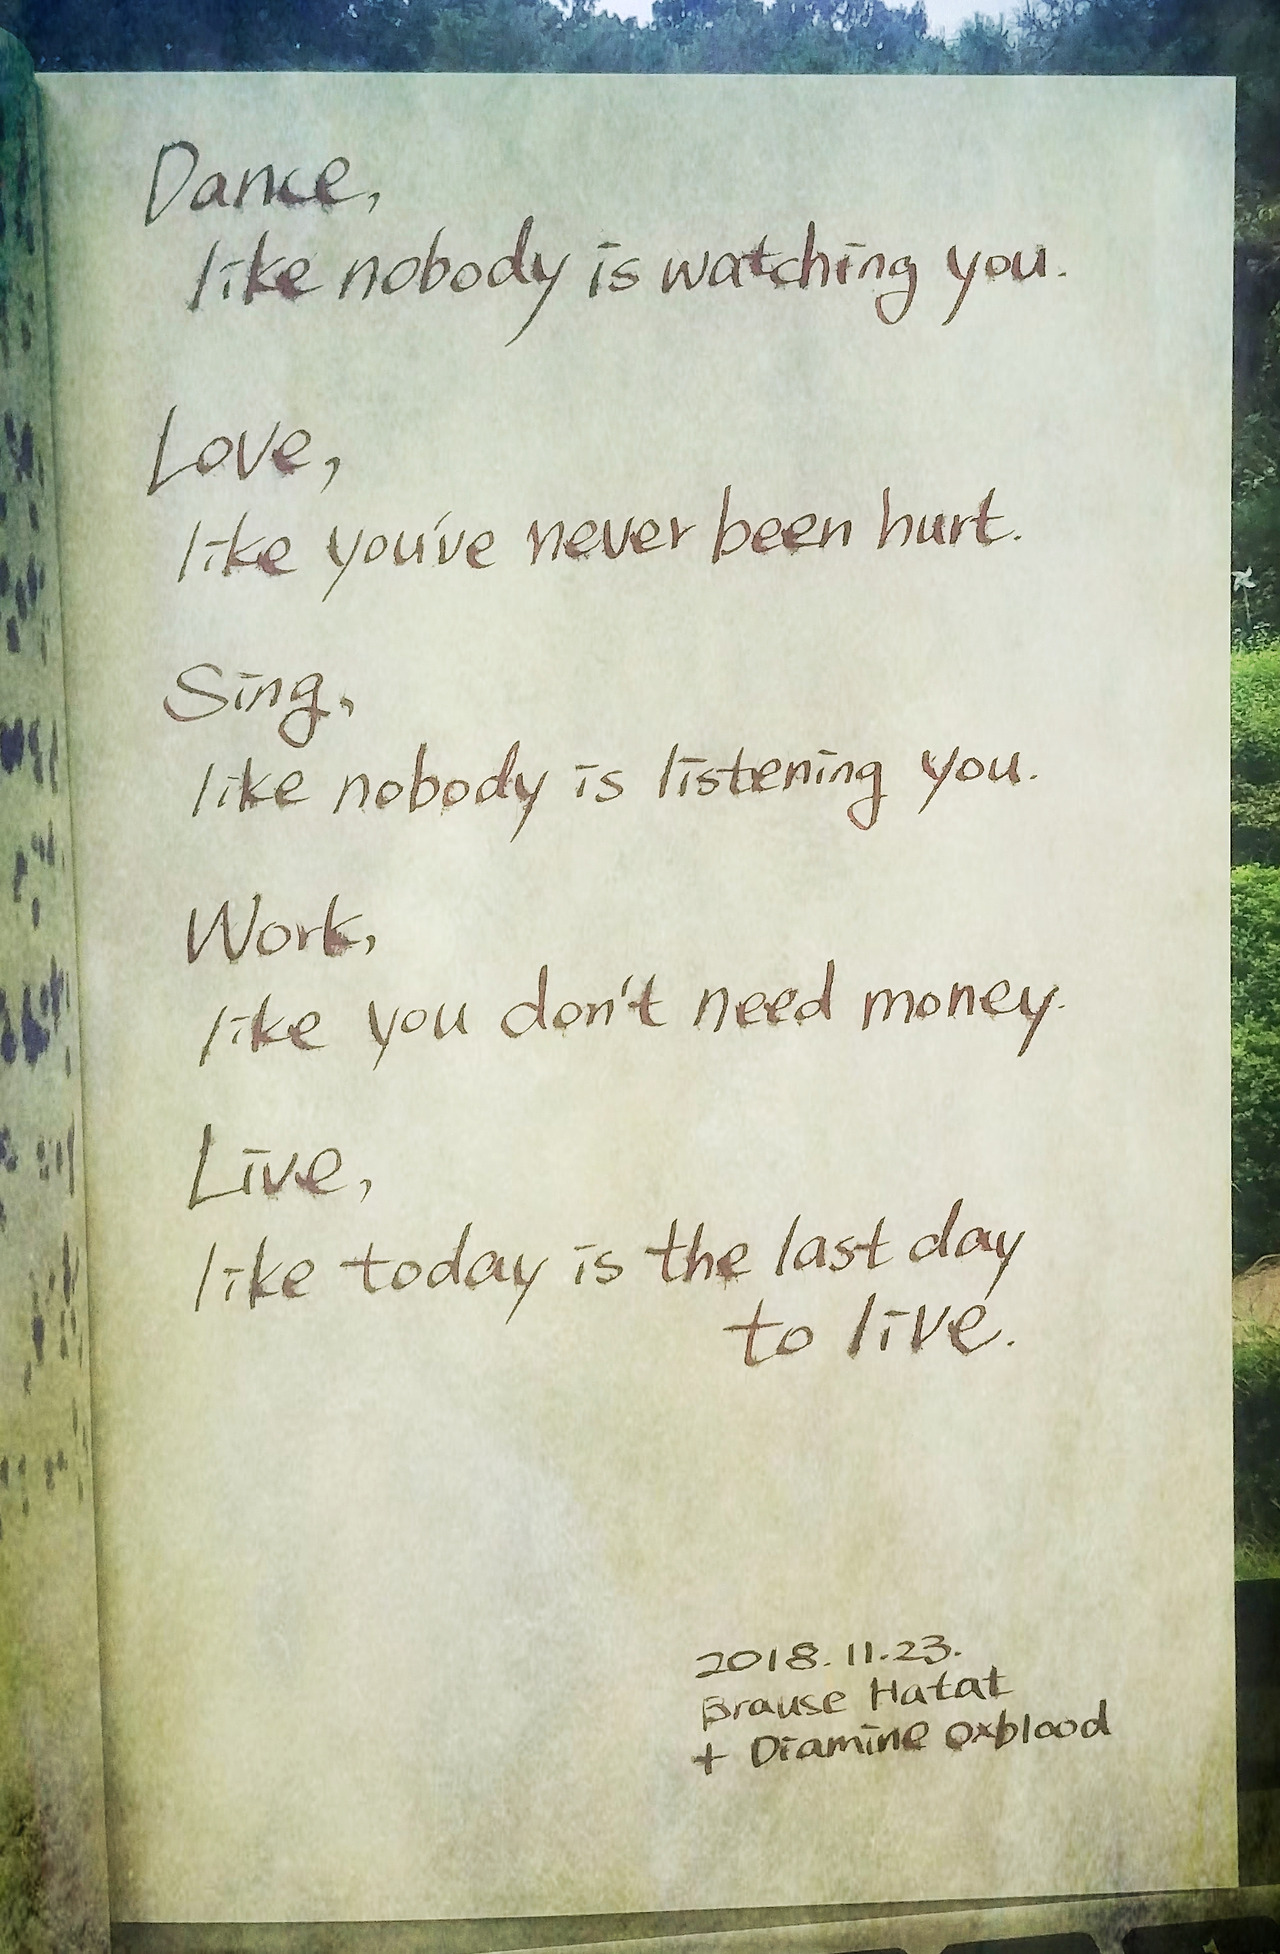 Dance,
like nobody is watching you.
Love,
like you've never been hurt.
Sing,
like nobody is listening you.
Work,
like you don't need money.
Live,
like today is the last day
to live.
2018.11.23.
Brause Hatat
+ Diamine oxblood